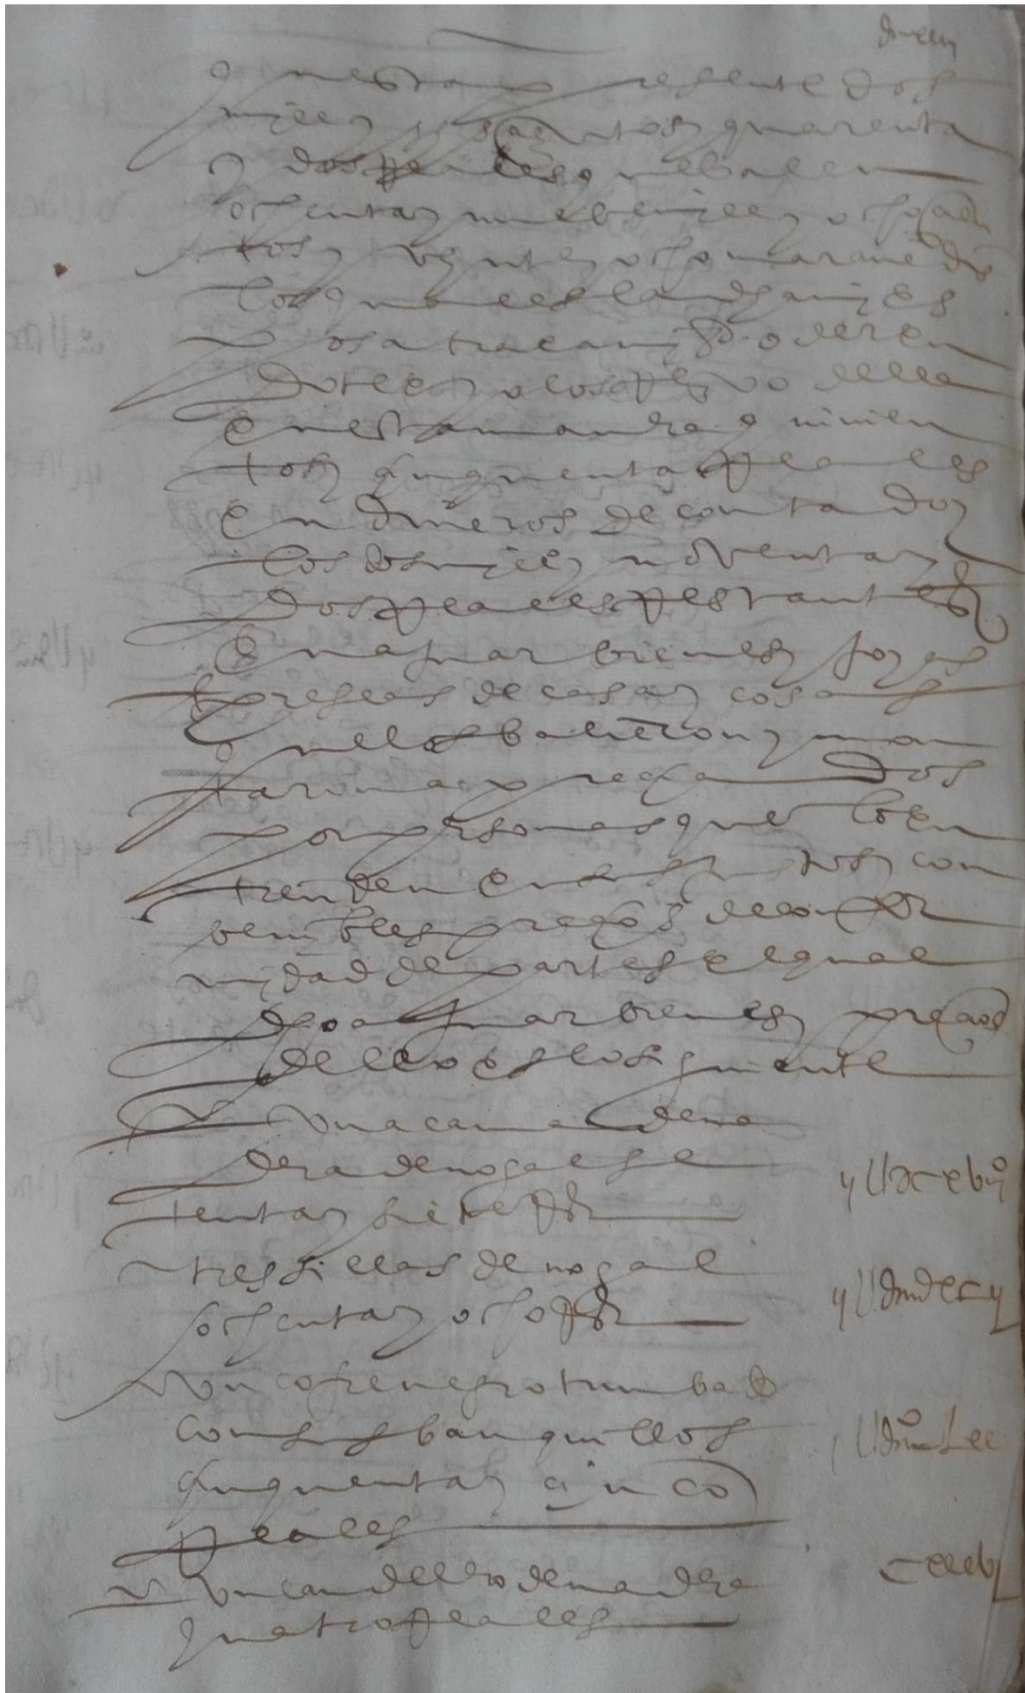 questa presente dos
mill y seiscientos y quarenta
y dos reales que balen
ochenta y nuebe mill y ochocien
tos y veynte y ocho maravedis
los quales la dha mi es
posa trae a mi poder en
dote y en esta manera quinien
tos y cinquenta reales
en dineros de contado y
los dos mill y noventa y
dos reales restantes
en axuar bienes joyas
preseas de casa y cosas
que los balieron y mon
taron apreçiados
por personas que lo en
tienden en justos y con
benibles preçios de confor
midad de partes el qual
dho axuar bienes y preçios
dello es lo siguiente
una cama de ma
dera de nogal se
tenta y siete rs
tres sillas de nogal
ochenta y ocho rs
un cofre negro tumbado
con sus banquillos
cinquenta y cinco
reales
un candelero de madera
quatro reales